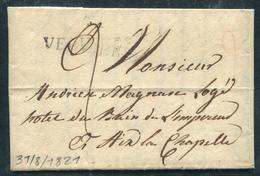 VE
Monsieur
Andrien Magnuse Logé
hotel du Bain de Lempereur
a Aix la Chapelle
31/8/1821